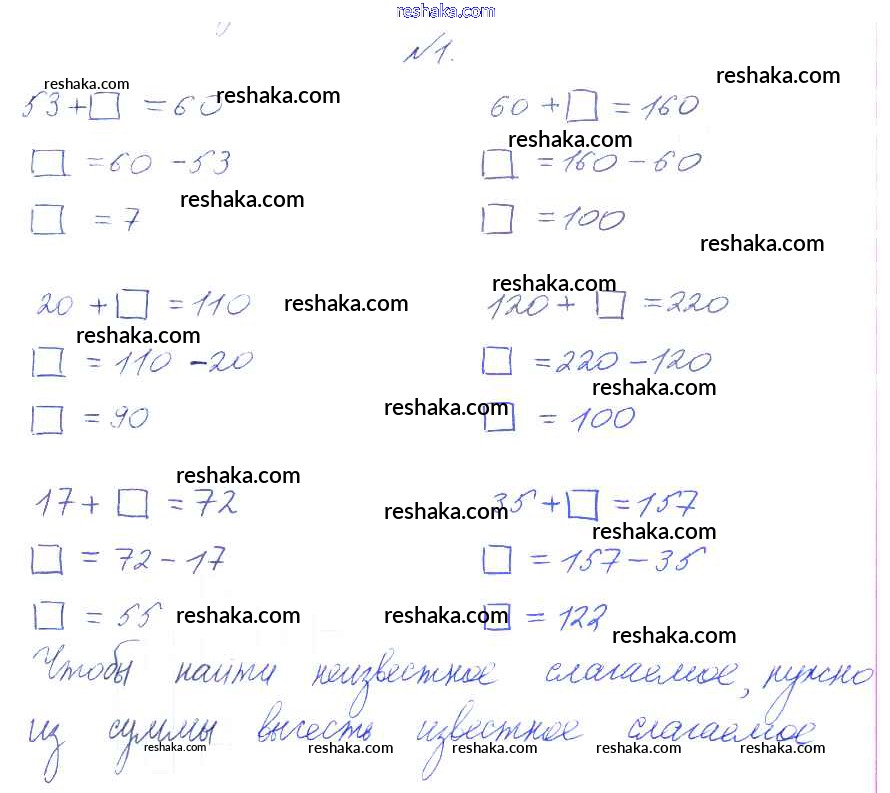 reshaka.com
№1.
reshaka.com
reshaka.com
reshaka.com
53 + □ = 60
60 + □ = 160
reshaka.com
□ = 60 - 53
□ = 160 - 60
reshaka.com
□ = 7
□ = 100
reshaka.com
reshaka.com
20 + □ = 110
reshaka.com
120 + □ = 220
reshaka.com
□ = 110 - 20
□ = 220 - 120
reshaka.com
reshaka.com
□ = 90
□ = 100
reshaka.com
17 + □ = 72
reshaka.com
35 + □ = 157
reshaka.com
□ = 72 - 17
□ = 157 - 35
□ = 55
reshaka.com
reshaka.com
□ = 122
reshaka.com
Чтобы найти неизвестное слагаемое, нужно
из суммы вычесть известное слагаемое
reshaka.com
reshaka.com
reshaka.com
reshaka.com
reshaka.com